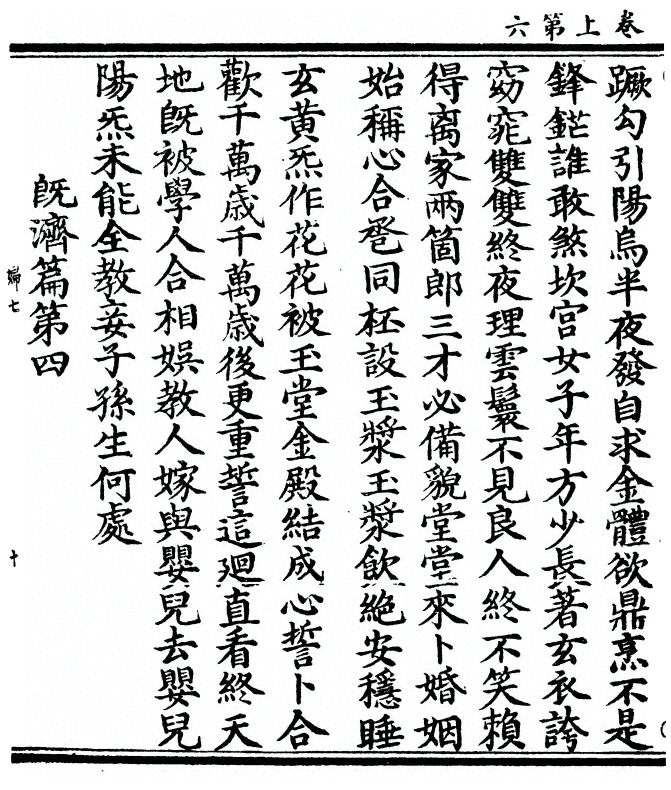 卷上第六
蹶勾引陽烏半夜發自求金體欲鼎烹不是
鋒鋩誰敢煞坎宮女子年方少長著玄衣誇
窈窕雙雙終夜理雲鬟不見良人終不笑賴
得离家兩箇郎三才必備貌堂堂來卜婚姻
始稱心合卺同杯設玉漿玉漿飲絕安穩睡
玄黃炁作花花被玉堂金殿結成心誓卜合
歡千萬歲千萬歲後更重誓這廻直看終天
地旣被學人合相娛教人嫁與嬰兒去嬰兒
陽炁未能全教妾子孫生何處
旣濟篇第四
婦七
十